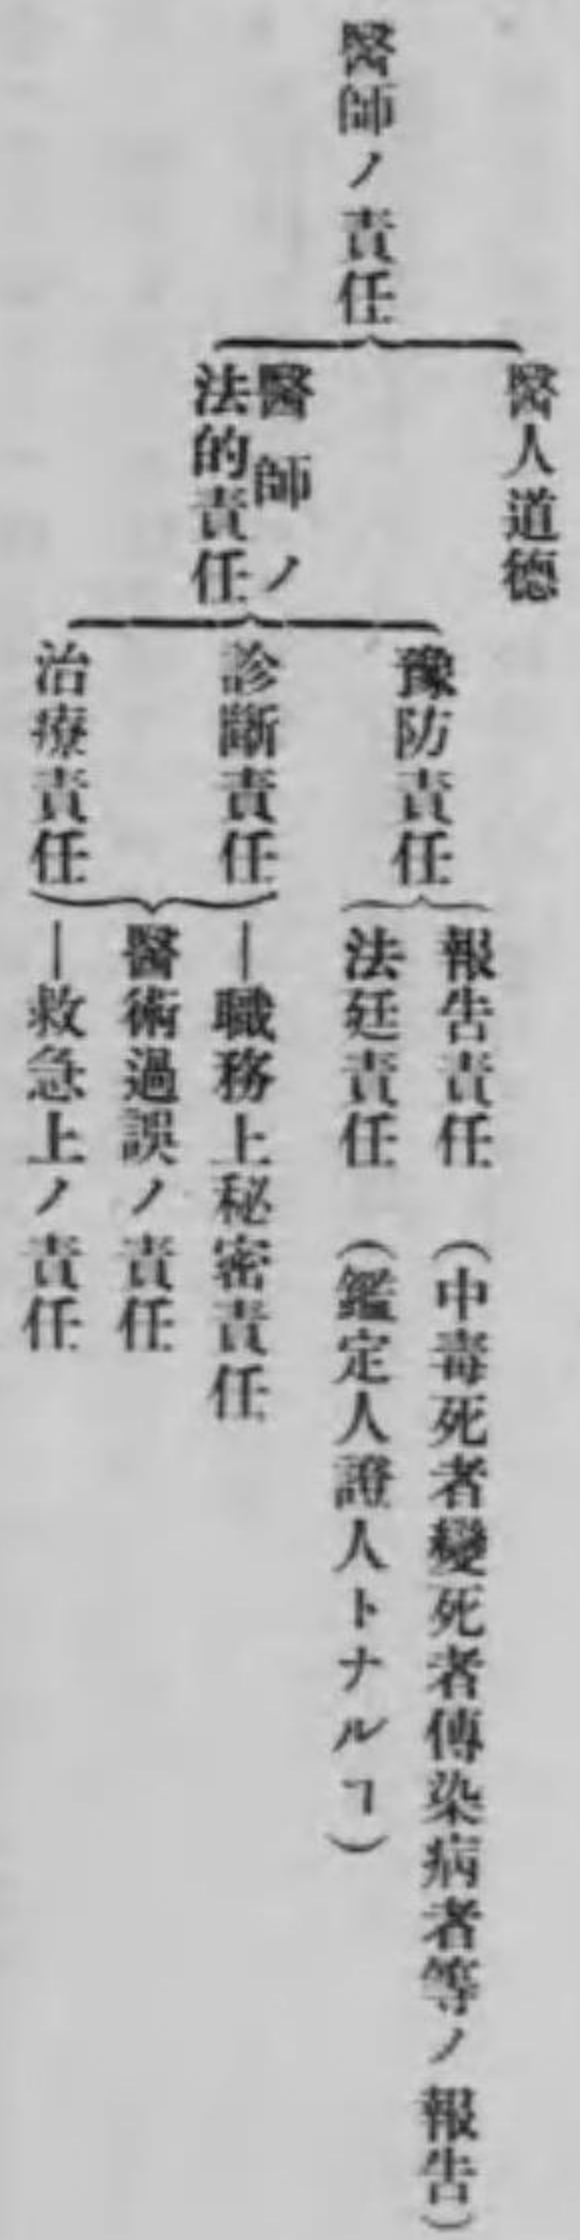 醫師ノ責任
醫人道德
醫師ノ
法的責任
豫防責任
報告責任 (中毒死者變死者傳染病者等ノ報告)
法廷責任 (鑑定人證人トナルヿ)
診斷責任
―職務上秘密責任
醫術過誤ノ責任
治療責任
―救急上ノ責任